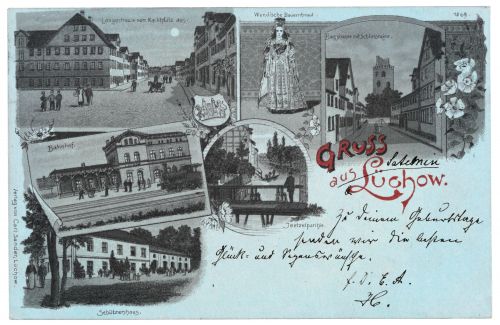 Langestrasse vom Marktplatz aus.
Wendische Bauernbraut
Burgstrasse mit Schlossruine.
Bahnhof.
Jeetzelpartie.
Schützenhaus.
GRUSS
aus Lüchow.
Zu deinem Geburtstage
senden wir die besten
Glück- und Segenswünsche.
H.